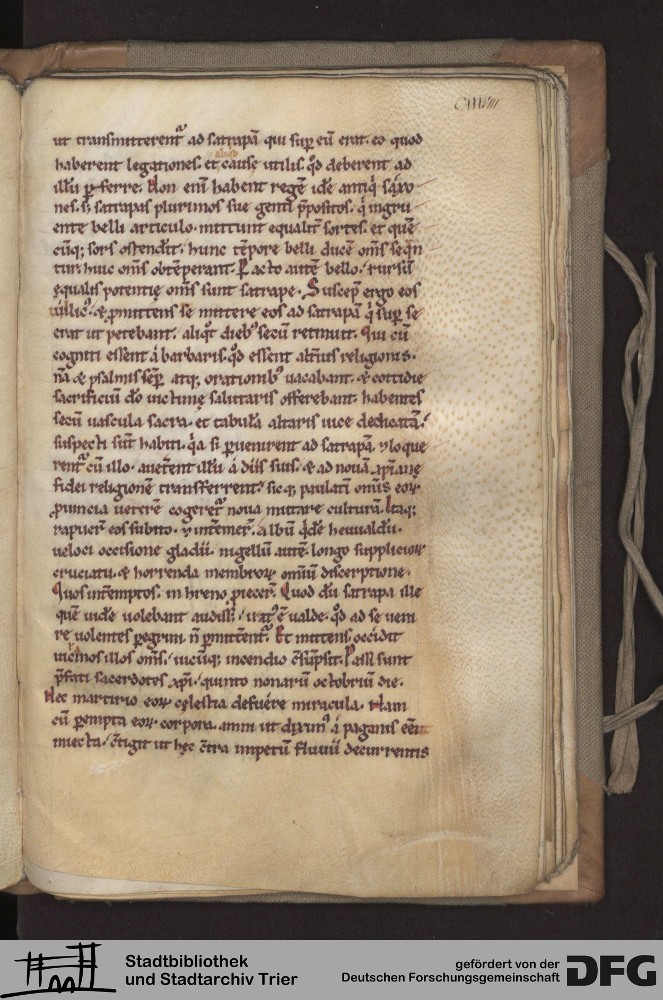 ut transmitterent᷒ ad satrapā qui sup eū erat. eo quod
haberent legationes. et aliq̄ cause utilis. qd̄ deberent ad
illū p̄ferre. Non enī habent regē idē antiq̇ saxo
nes. s; satrapas plurimos sue genti p̄positos. q̇ ingru
ente belli articulo. mittunt equalit̄ sortes. et quē
cūq; sors ostendit. hunc tēpore belli ducē om̄s seq̄n
tur. huic om̄s obtēperant. Pacto autē bello. rursū
ęqualis potentię om̄s sunt satrape. Suscep̄ ergo eos
uillic᷒. & p̄mittens se mittere eos ad satrapā q̇ sup se
erat ut petebant. aliqt̄ dieb᷒ secū retinuit. Qui cū
cogniti essent á barbaris. qd̄ essent alt̄ius religionis.
nā & psalmis semp̄ atq; orationib᷒ uacabant. & cottidie
sacrificiū dō uictimę salutaris offerebant. habentes
secū uascula sacra. et tabulā altaris uice dedicatā.
suspecti sūt habiti. q̇a si puenirent ad satrapā. & loque
rent᷒ cū illo. auerterent illū á diis suis. & ad nouā xpianę
fidei religionē transferrent. sicq; paulatī omīs eoꝝ
puincia ueterē cogeret᷒ noua mutare culturā. Itaq;
rapuer̄ eos subito. & intēmer̄. albū qͥdē heuualdū.
ueloci occisione gladii. nigellū autē. longo supplicioꝝ
cruciatu. & horrenda membroꝝ omniū discerptione.
Quos int̄emptos. in hreno piecer̄. Quod dū satrapa ille
quē uidē uolebant audiss;. irat᷒ ē ualde. qd̄ ad se ueni
re uolentes pegrini n̄ pmittent᷒. Et mittens occidit
uicinos illos om̄s. uicūq; incendio c̄sūpsit. Passi sunt
p̄fati sacerdotes xpi. quinto nonarū octobriū die.
Nec martirio eoꝝ cęlestia defuére miracula. Nam
cū pempta eoꝝ corpora. amni ut dixim᷒ á paganis eēnt
iniecta. c̄tigit ut hęc c̄tra impetū fluuii decurrentis
Stadtbibliothek
und Stadtarchiv Trier
gefördert von der
Deutschen Forschungsgemeinschaft
DFG